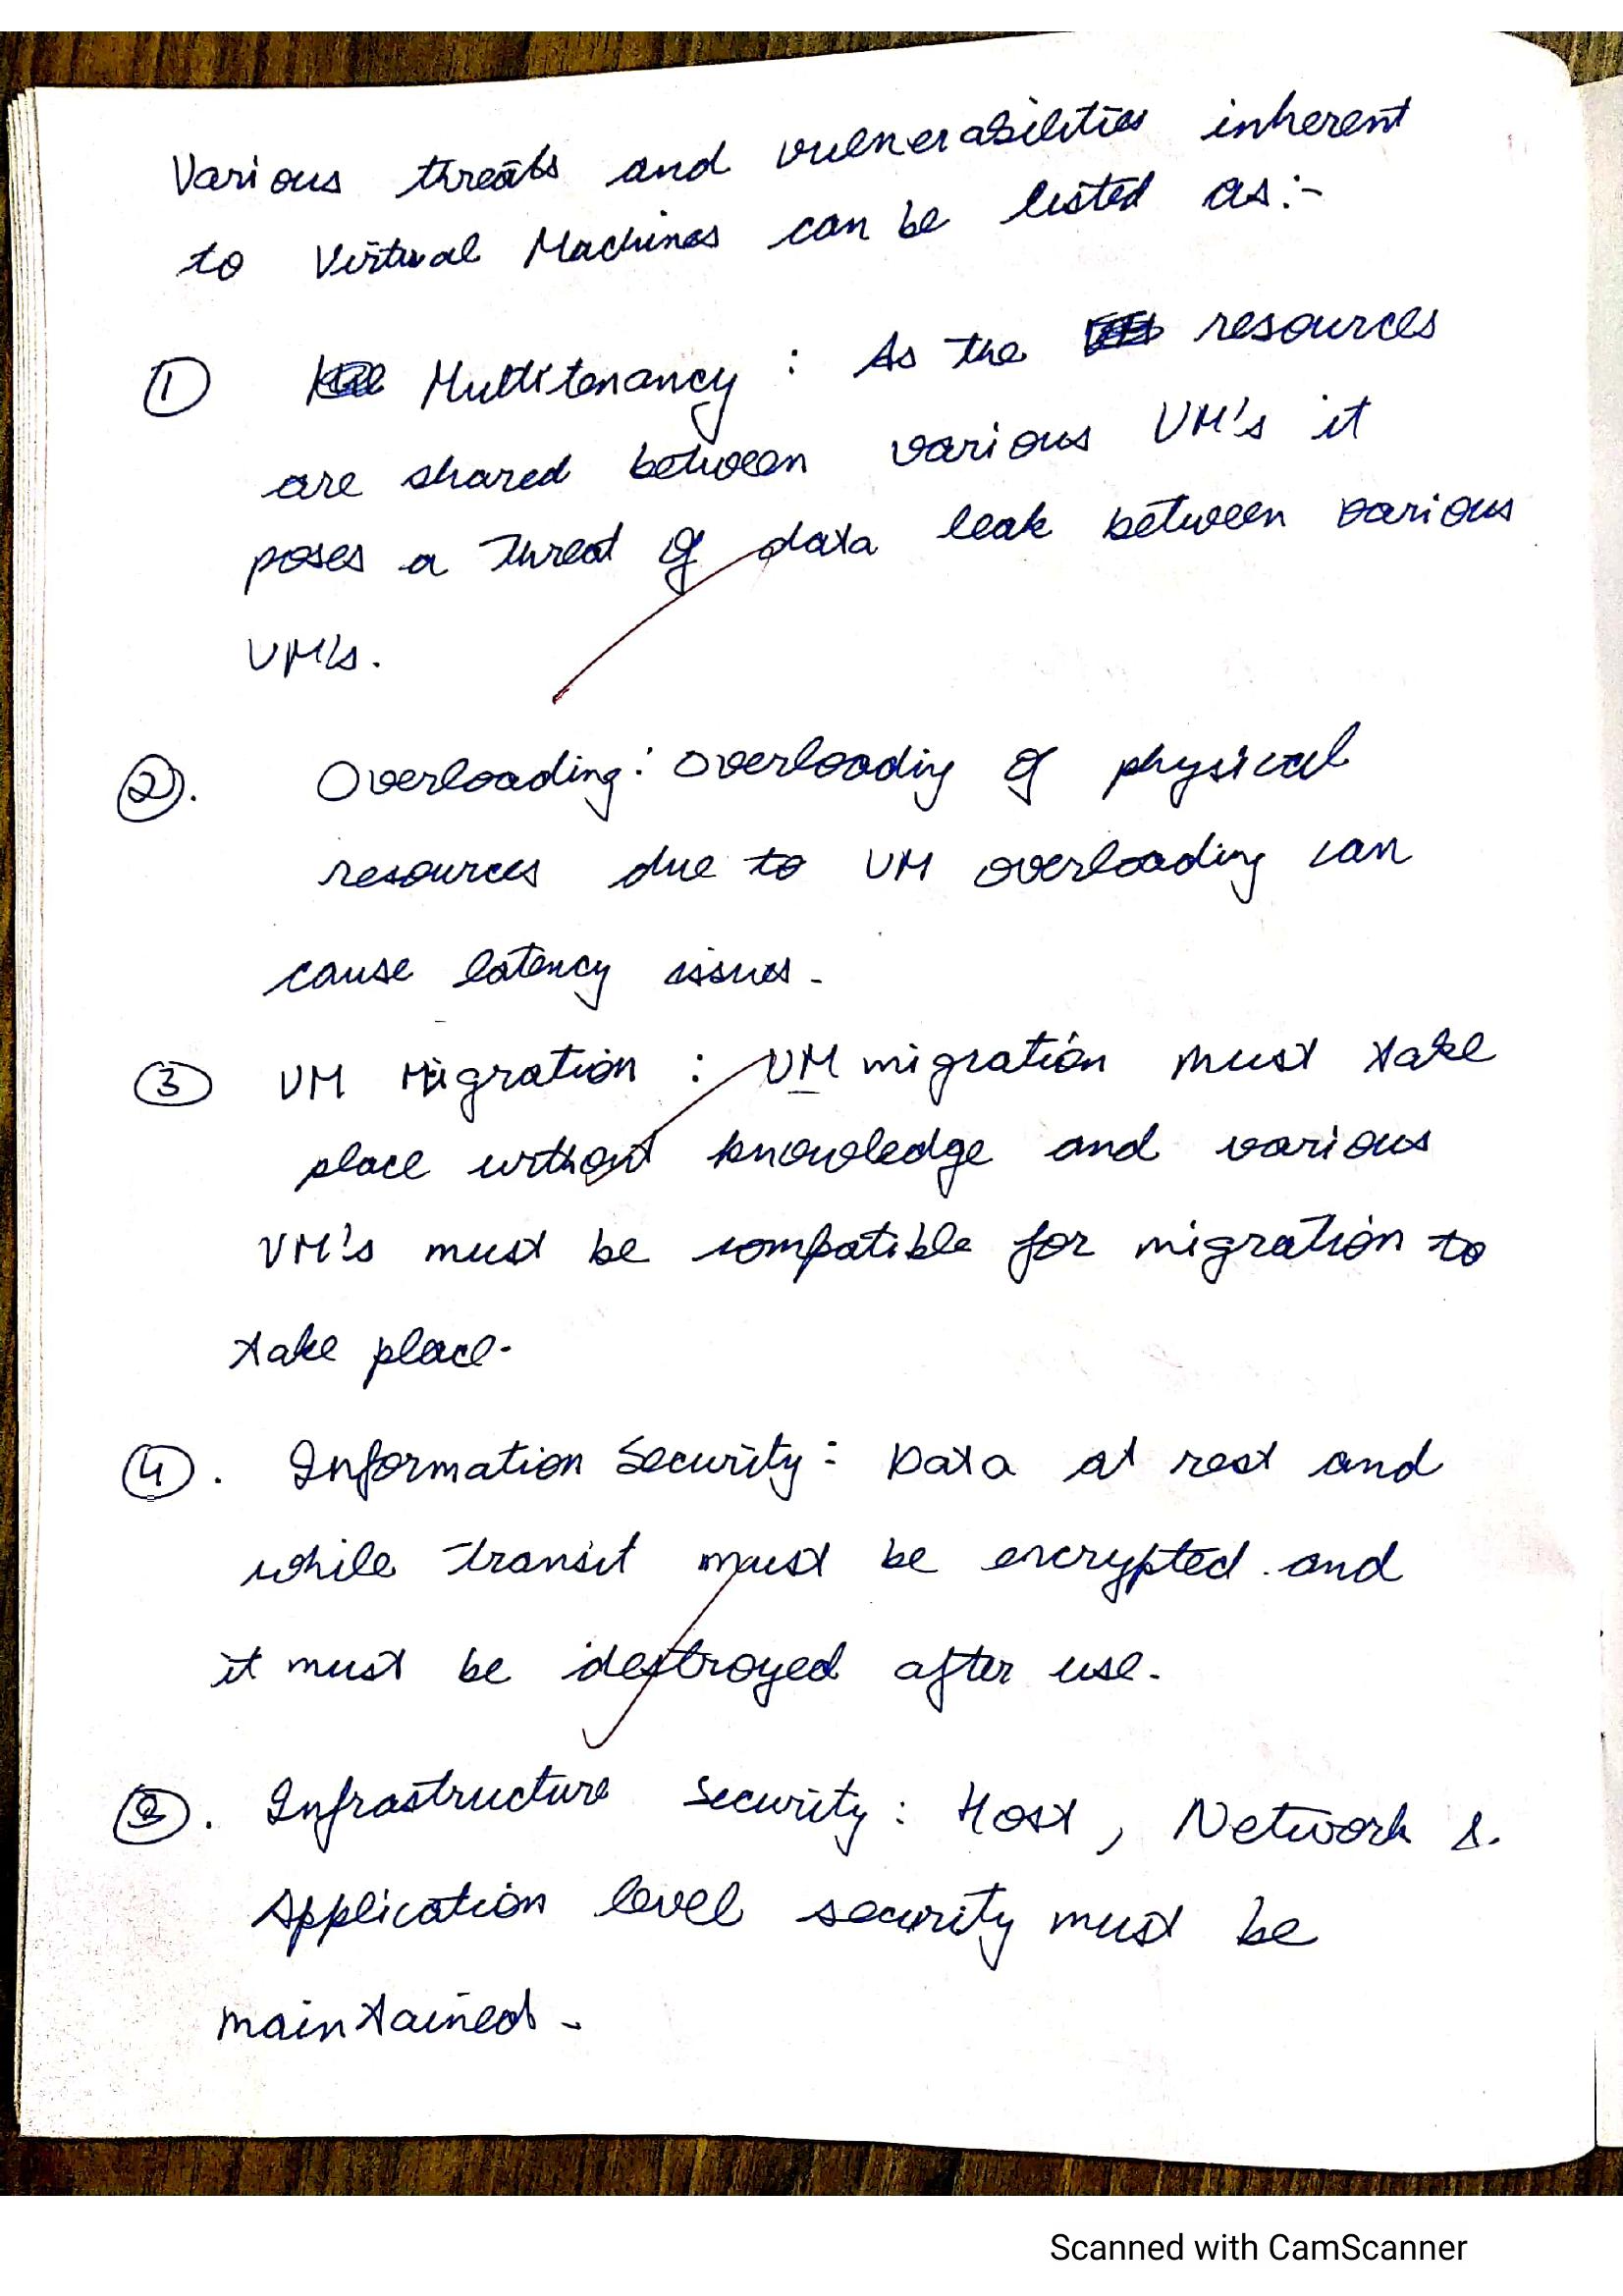 Various threats and vulnerabilities inherent
to Virtual Machines can be listed as:-
① Multitenancy : As the resources
are shared between various VM's it
poses a threat of data leak between various
VM's.
②. Overloading : Overloading of physical
resources due to VM overloading can
cause latency issues.
③ VM Migration : VM migration must take
place without knowledge and various
VM's must be compatible for migration to
take place.
④. Information Security : Data at rest and
while transit must be encrypted and
it must be destroyed after use.
⑤. Infrastructure Security : Host, Network &
Application level security must be
maintained.
Scanned with CamScanner